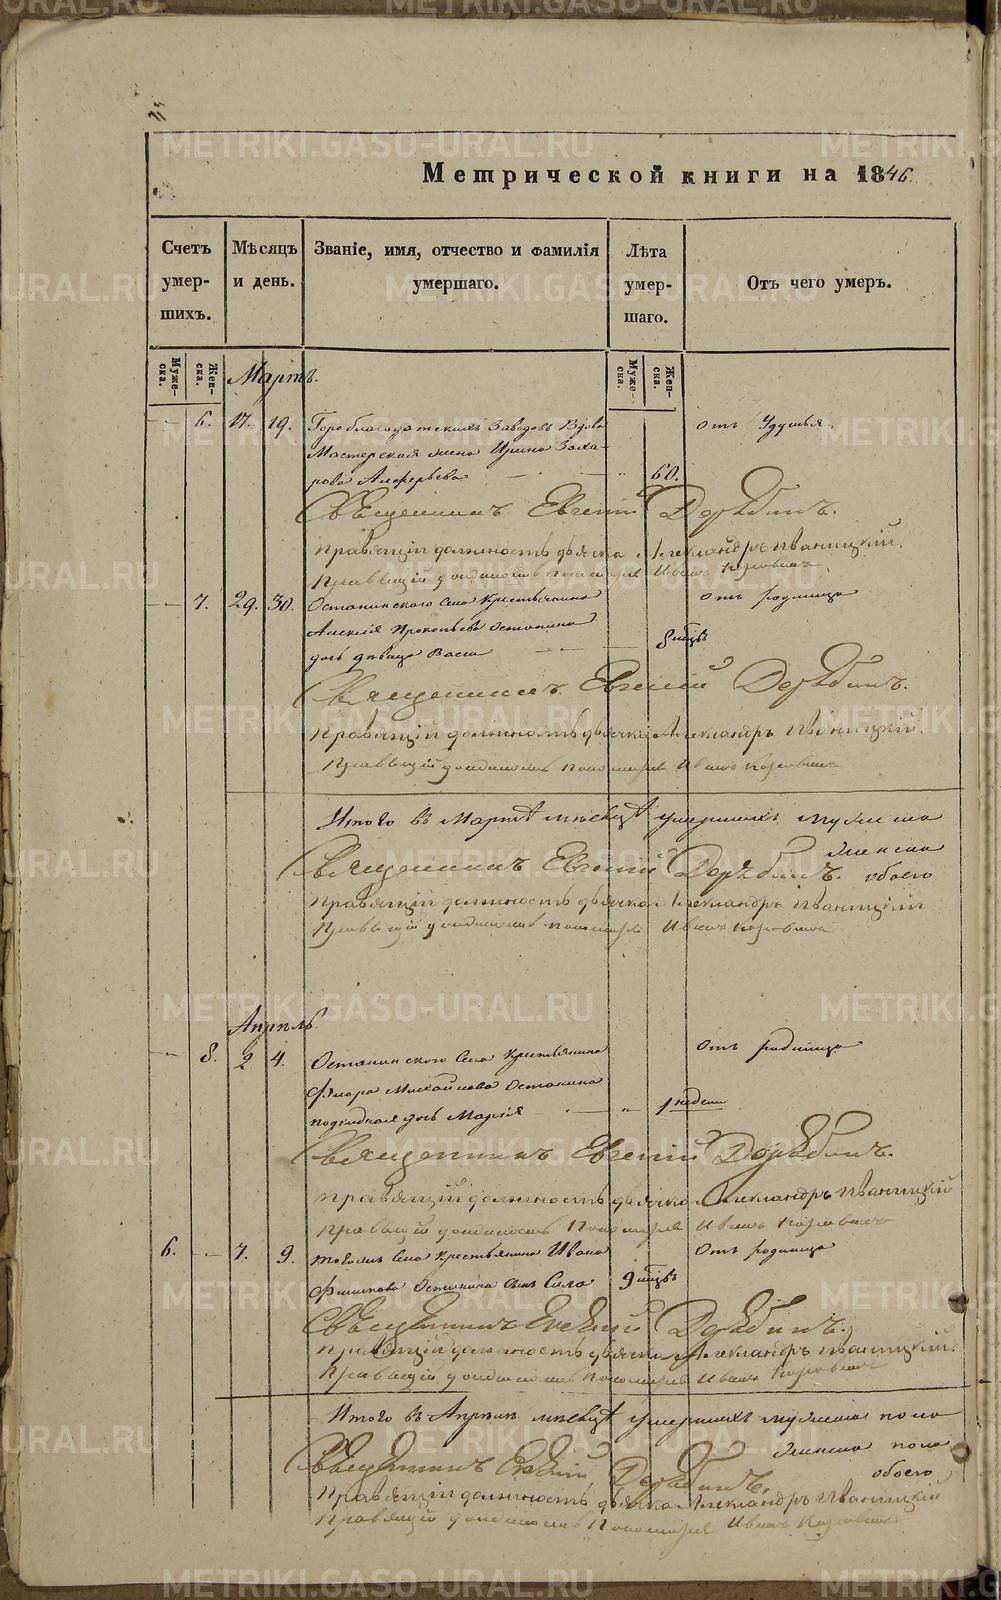 Метрической книги на 1846.
Счетъ умер-шихъ.
Мѣсяцъ и день.
Званіе, имя, отчество и фамилія умершаго.
Лѣта умер-шаго.
Отъ чего умеръ.
Муже-ска.
Жен-ска.
Муже-ска.
Жен-ска.
Мартъ.
6. 17. 19. Гороблагодатскихъ Заводовъ Вдова отъ Удушья.
Мастерская жена Ирина Заха-
рова Алферьева 60.
Священникъ Евгений Дерябинъ.
Правящій должность дьячка Александръ Иваницкій.
Правящій должность Пономаря Иванъ
7. 29. 30. Останинского Села Крестьянина отъ родимца
Алексія Прокопьева Останина
дочь девица Васса 8 мцвъ
Священникъ Евгений Дерябинъ.
Правящій должность дьячка Александръ Иваницкій.
Правящій должность Пономаря Иванъ
Итого въ Мартѣ мѣсяцѣ умершихъ мужеска
женска
Священникъ Евгений Дерябинъ. обоего
Правящій должность дьячка Александръ Иваницкій
Правящій должность Пономаря Иванъ
Апрель.
8. 2 4. Останинского Села Крестьянина Отъ родимца
Михайлова Останина
дочь Марія 1 недели
Священникъ Евгений Дерябинъ.
Правящій должность дьячка Александръ Иваницкій
Правящій должность Пономаря Иванъ
6. 7. 9. тогожъ Села Крестьянина Ивана Отъ родимца
Останина сынъ Сила 9 мцвъ
Священникъ Евгений Дерябинъ.
Правящій должность дьячка Александръ Иваницкій.
Правящій должность Пономаря Иванъ
Итого въ Апреле мѣсяцѣ умершихъ мужеска пола
женска пола
Священникъ Евгений Дерябинъ. обоего
Правящій должность дьячка Александръ Иваницкій
Правящій должность Пономаря Иванъ
METRIKI.GASO-URAL.RU